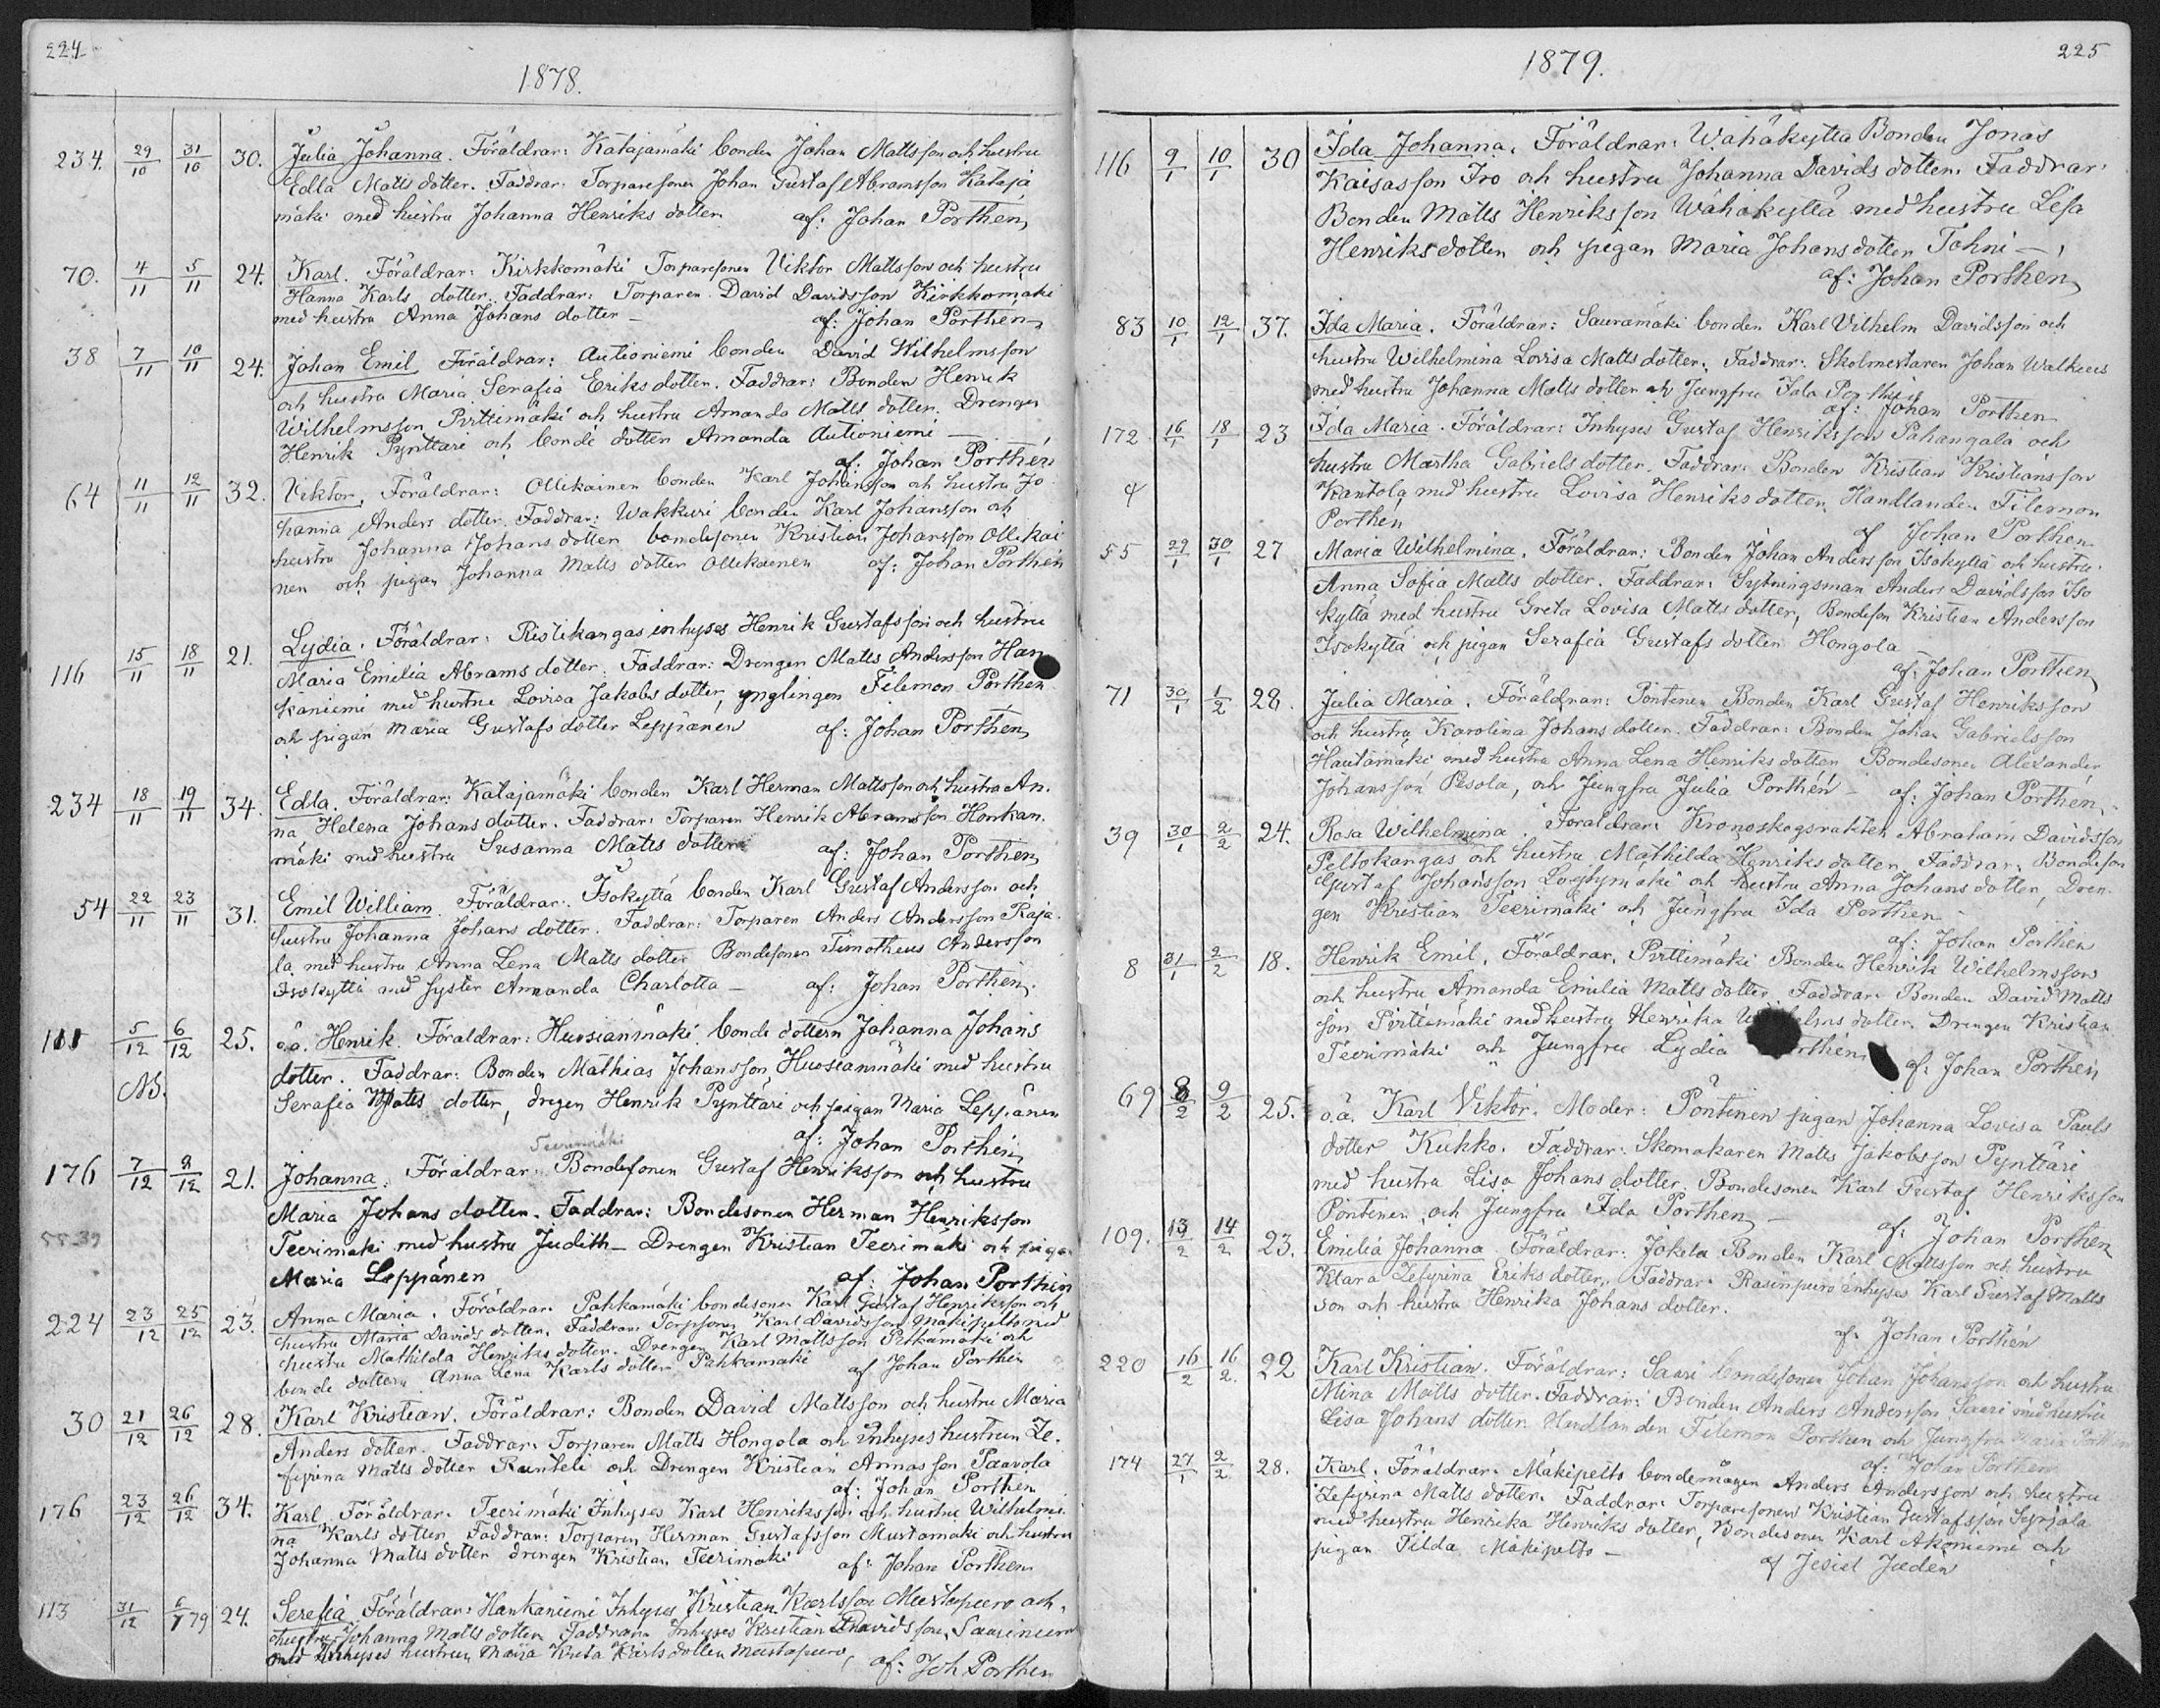 224
1878.
234. 29/10 31/10 30. Julia Johanna. Föräldrar: Katajamäki bonden Johan Mattsson och hustru
Edla Matts dotter. Faddrar: Torparesonen Johan Gustaf Abramsson Kataja
mäki med hustru Johanna Henriks dotter af: Johan Porthén
70. 4/11 5/11 24. Karl. Föräldrar: Kirkkomäki Torparesonen Viktor Mattsson och hustru
Hanna Karls dotter. Faddrar: Torparen David Davidsson Kirkkomäki
med hustru Anna Johans dotter — af: Johan Porthén
38 7/11 10/11 24. Johan Emil Föräldrar: Autioniemi bonden David Wilhelmsson
och hustru Maria Serafia Eriks dotter. Faddrar: Bonden Henrik
Wilhelmsson Pirttimäki och hustru Amanda Matts dotter. Drengen
Henrik Pynttäri och bonde dotter Amanda Autioniemi —
af: Johan Porthén
64 11/11 12/11 32. Viktor, Föräldrar: Ollikainen bonden Karl Johansson och hustru Jo
hanna Anders dotter. Faddrar: Wakkuri bonden Karl Johansson och
hustru Johanna Johans dotter bondesonen Kristian Johansson Ollikai
nen och pigan Johanna Matts dotter Ollikainen af: Johan Porthén
116 15/11 18/11 21. Lydia. Föräldrar: Ristikangas inhyses Henrik Gustafsson och hustru
Maria Emilia Abrams dotter. Faddrar: Drengen Matts Andersson Han
kaniemi med hustru Lovisa Jakobs dotter, ynglingen Filemon Porthén
och pigan Maria Gustafs dotter Leppänen af: Johan Porthén
234 18/11 19/11 34. Edla. Föräldrar: Katajamäki bonden Karl Herman Mattsson och hustru An.
na Helena Johans dotter. Faddrar: Torparen Henrik Abramsson Honkan.
mäki med hustru Susanna Matts dotter af: Johan Porthén
54 22/11 23/11 31. Emil William. Föräldrar: Isokyttä bonden Karl Gustaf Andersson och
hustru Johanna Johans dotter. Faddrar: Torparen Anders Andersson Raja.
la med hustru Anna Lena Matts dotter Bondesonen Timotheus Andersson
Isokyttä med syster Amanda Charlotta — af: Johan Porthén.
111 5/12 6/12 25. o.ä. Henrik. Föräldrar: Huosianmäki bonde dottern Johanna Johans
NB. dotter. Faddrar: Bonden Mathias Johansson Huosianmäki med hustru
Serafia Matts dotter, dregen Henrik Pynttäri och pigan Maria Leppänen
af: Johan Porthén
Teerimäki
176 7/12 9/12 21. Johanna. Föräldrar: Bondesonen Gustaf Henriksson och hustru
Maria Johans dotter. Faddrar: Bondesonen Herman Henriksson
Teerimäki med hustru Judith — Drengen Kristian Teerimäki och pigan
Maria Leppänen af: Johan Porthén
224 23/12 25/12 23. Anna Maria. Föräldrar: Pahkamäki bondesonen Karl Gustaf Henriksson och
hustru Maria Davids dotter. Faddrar: Torpsonen Karl Davidsson Mäkipelto med
hustru Mathilda Henriks dotter. Drengen Karl Mattsson Pitkämäki och
bonde dottern Anna Lena Karls dotter Pahkamäki af Johan Porthén
30 21/12 26/12 28. Karl Kristian. Föräldrar: Bonden David Mattsson och hustru Maria
Anders dotter. Faddrar: Torparen Matts Hongola och Inhyses hustrun Ze.
fyrina Matts dotter Runteli och Drengen Kristian Annasson Paavola
af: Johan Porthén
176 23/12 26/12 34. Karl. Föräldrar: Teerimäki Inhyses Karl Henriksson och hustru Wilhelmi.
na Karls dotter Faddrar: Torparen Herman Gustafsson Mustamäki och hustru
Johanna Matts dotter drengen Kristian Teerimäki af: Johan Porthén
113 31/12 6/1 79 24. Serefia. Föräldrar: Hankaniemi Inhyses Kristian Karlsson Mustapuro och
hustru Johanna Matts dotter Faddrar: Inhyses Kristian Davidsson
med Inhyses hustrun Maija Greta Karls dotter Mustapuro, af: Joh Porthén
1879.
225
116 9/1 10/1 30 Ida Johanna. Föräldrar: Wähäkyttä Bonden Jonas
Kaisasson Iro och hustru Johanna Davids dotter. Faddrar:
Bonden Matts Henriksson Wähäkyttä med hustru Lisa
Henriksdotter och pigan Maria Johansdotter Tohni —
af: Johan Porthén
83 10/1 12/1 37. Ida Maria. Föräldrar: Sauramäki bonden Karl Vilhelm Davidsson och
hustru Wilhelmina Lovisa Matts dotter. Faddrar: Skolmestaren Johan Walkius
med hustru Johanna Matts dotter och Jungfru Ida Porthén
af: Johan Porthén
172. 16/1 18/1 23 Ida Maria. Föräldrar: Inhyses Gustaf Henriksson Pahangala och
hustru Martha Gabriels dotter. Faddrar: Bonden Kristian Kristiansson
Kantola med hustru Lovisa Henriks dotter, Handlanden Filemon
Porthén af Johan Porthén
55 29/1 30/1 27 Maria Wilhelmina. Föräldrar: Bonden Johan Andersson Isokyttä och hustru
Anna Sofia Matts dotter. Faddrar: Sytningsman Anders Davidsson Iso
kyttä med hustru Greta Lovisa Matts dotter, Bondeson Kristian Andersson
Isokyttä och pigan Serafia Gustafs dotter Hongola
af: Johan Porthén
71 30/1 1/2 28. Julia Maria. Föräldrar: Pöntinen Bonden Karl Gustaf Henriksson
och hustru Karolina Johans dotter. Faddrar: Bonden Johan Gabrielsson
Hautamäki med hustru Anna Lena Henriks dotter Bondesonen Alexander
Johansson Pesola, och Jungfru Julia Porthén — af: Johan Porthén
39 30/1 2/2 24. Rosa Wilhelmina. Föräldrar: Kronoskogsvakten Abraham Davidsson
Peltokangas och hustru Mathilda Henriks dotter. Faddrar: Bondeson
Gustaf Johansson och hustru Anna Johans dotter, Dren-
gen Kristian Teerimäki och Jungfru Ida Porthén
af: Johan Porthén
8 31/1 2/2 18. Henrik Emil. Föräldrar: Pirttimäki Bonden Henrik Wilhelmsson
och hustru Amanda Emilia Matts dotter Faddrar: Bonden David Matts
son Pirttimäki med hustru Henrika dotter. Drengen Kristian
Teerimäki och Jungfru Lydia af: Johan Porthén
69 8/2 9/2 25. o.ä. Karl Viktor. Moder: Pöntinen pigan Johanna Lovisa Pauls
dotter Kukko. Faddrar: Skomakaren Matts Jakobsson Pynttäri
med hustru Lisa Johans dotter. Bondesonen Karl Gustaf Henriksson
Pöntinen och Jungfru Ida Porthén — af: Johan Porthén
109. 13/2 14/2 23. Emilia Johanna Föräldrar: Jokela Bonden Karl Mattsson och hustru
Klara Zefyrina Eriks dotter. Faddrar: Rasinpuro inhyses Karl Gustaf Matts
son och hustru Henrika Johans dotter.
af: Johan Porthén
220 16/2 16/2. 22 Karl Kristian. Föräldrar: Saari bondesonen Johan Johansson och hustru
Mina Matts dotter. Faddrar: Bonden Anders Andersson Saari med hustru
Lisa Johans dotter Handlanden Filemon Porthén och Jungfru Maria Porthén
af: Johan Porthén
174 27/1 2/2 28. Karl. Föräldrar: Mäkipelto bondemågen Anders Andersson och hustru
Zefyrina Matts dotter. Faddrar: Torparesonen Kristian Gustafsson
med hustru Henrika Henriks dotter, Bondesonen Karl Akoniemi och
pigan Tilda Mäkipelto —
af Jesiel Jadén